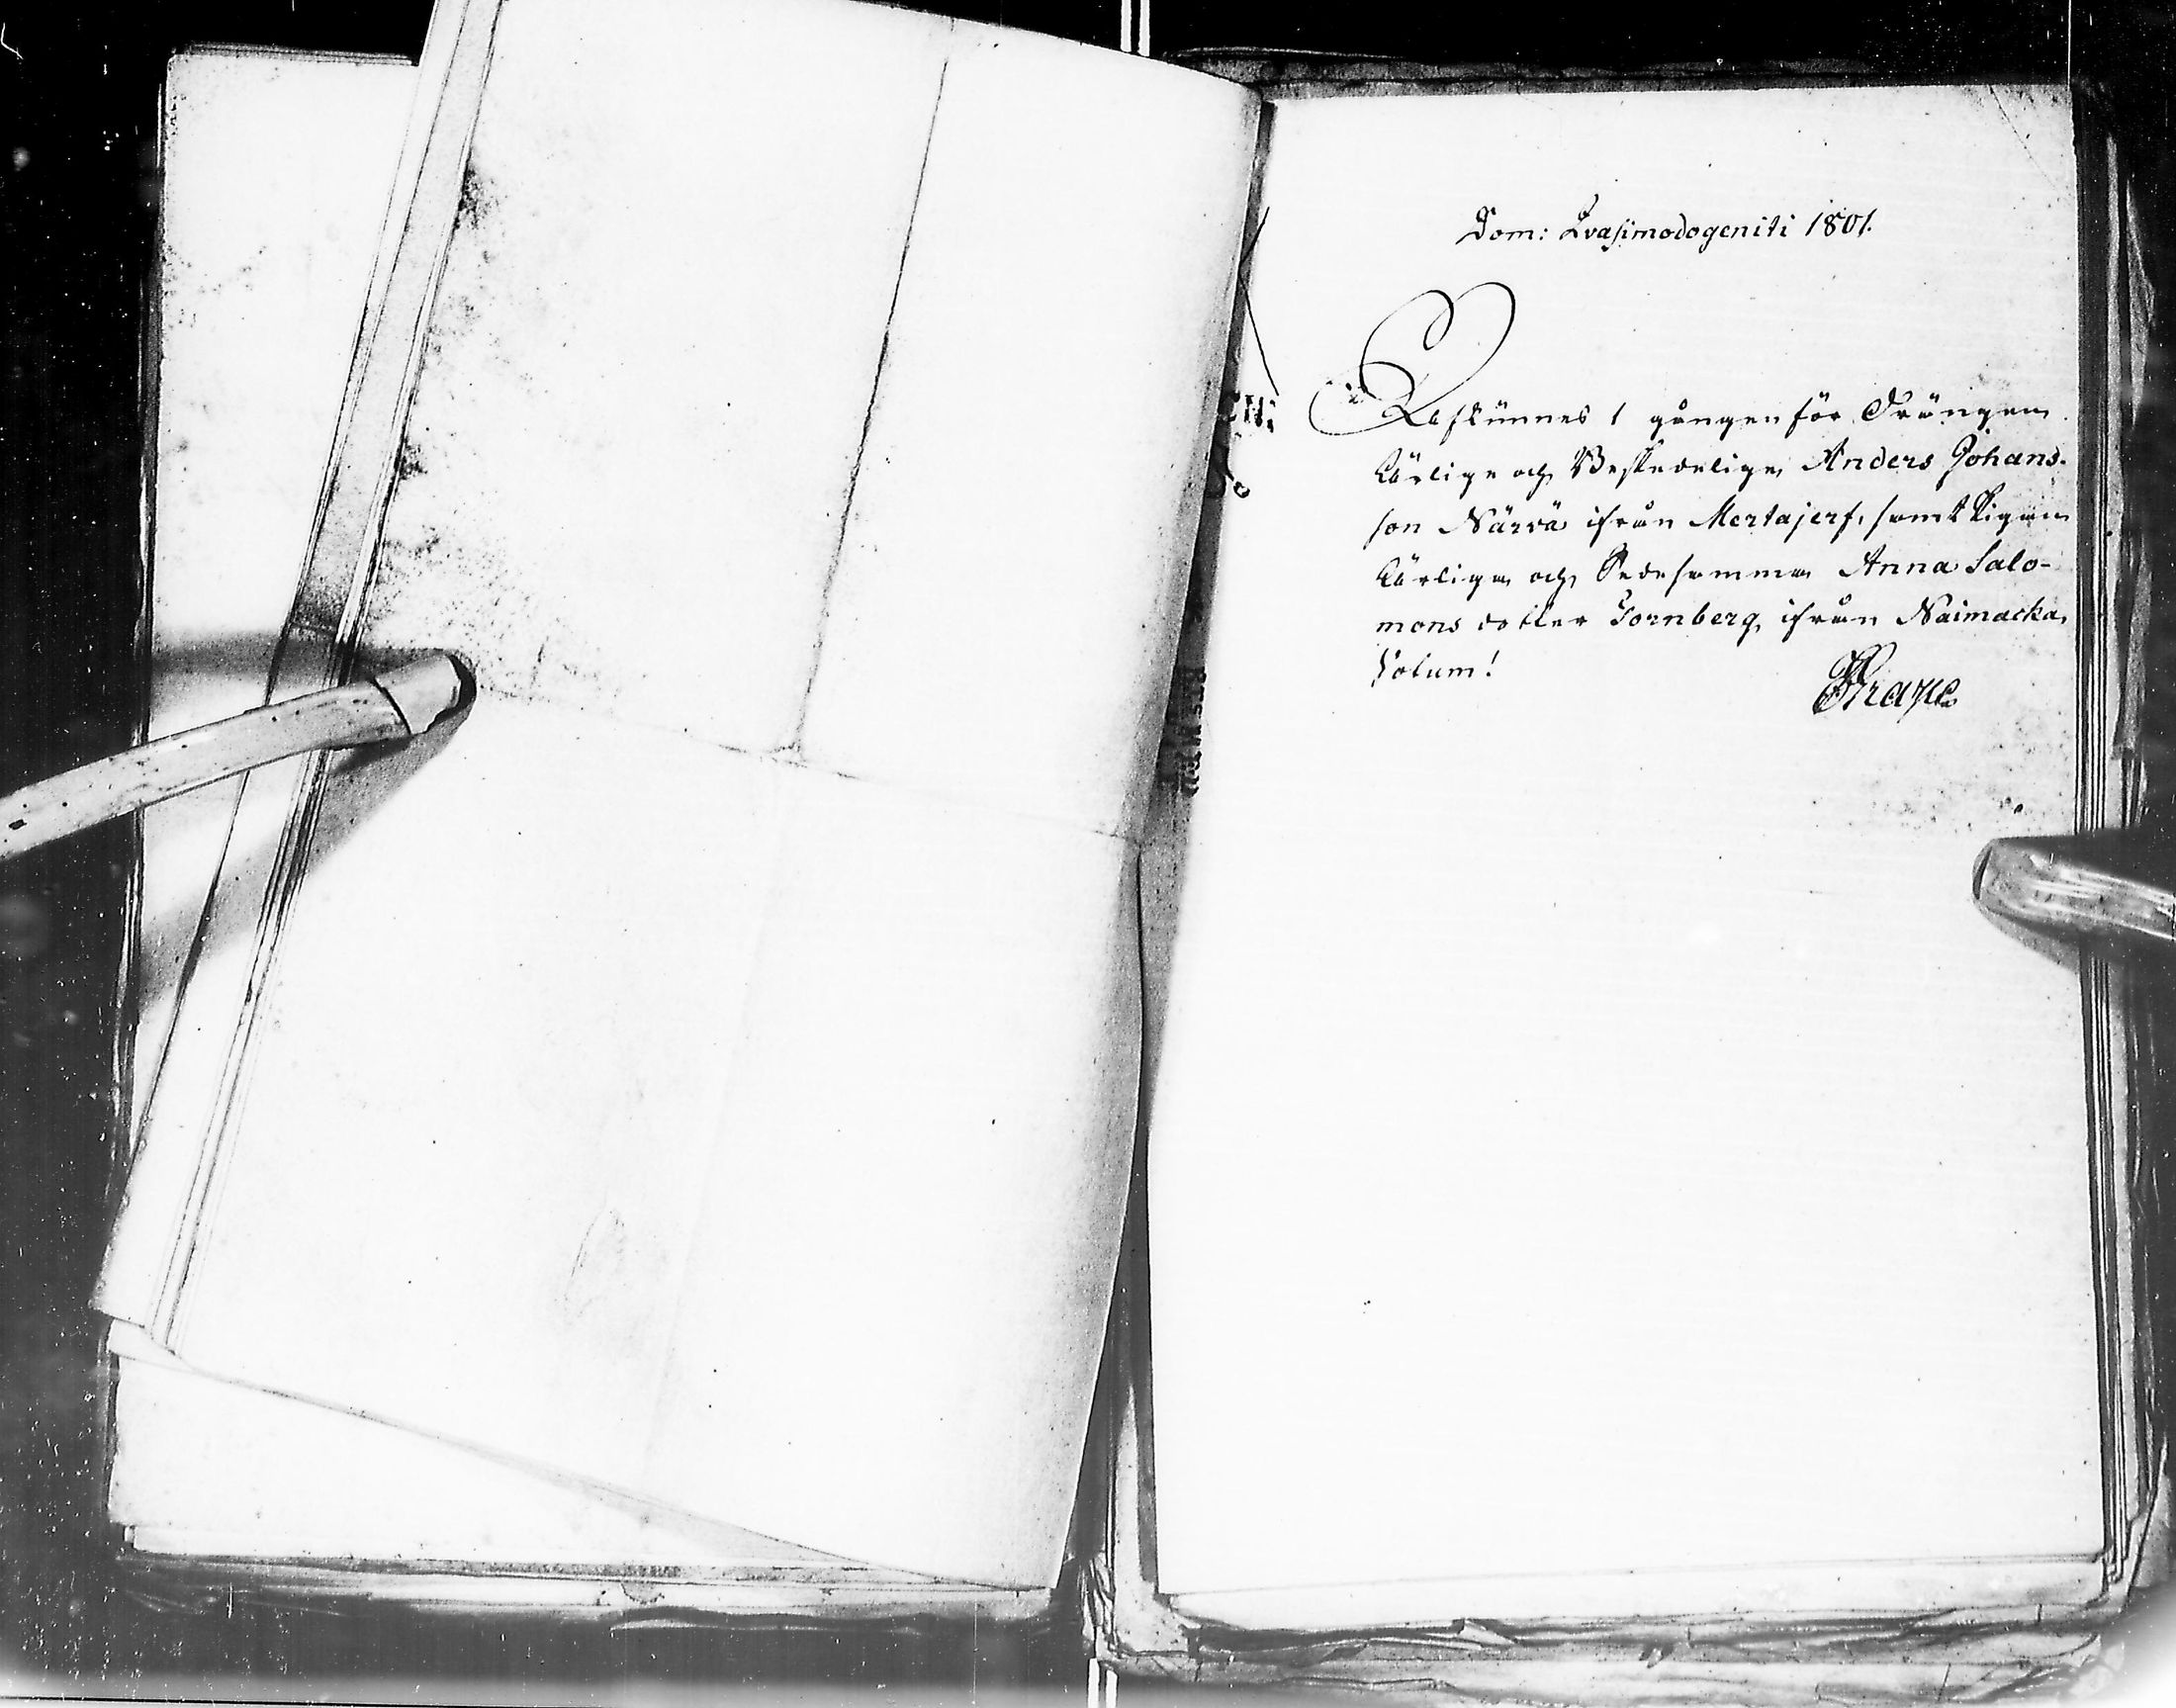 Dom: Qvasimodogeniti 1801.
Afkunnes 1 gången för Drängen
Ärlige och Beskedelige Anders Johans-
son Närvä ifrån Mertajerf, samt Pigan
Ärliga och Sedesamma Anna Salo-
mons dotter Tornberg, ifrån Naimacka,
Votum!